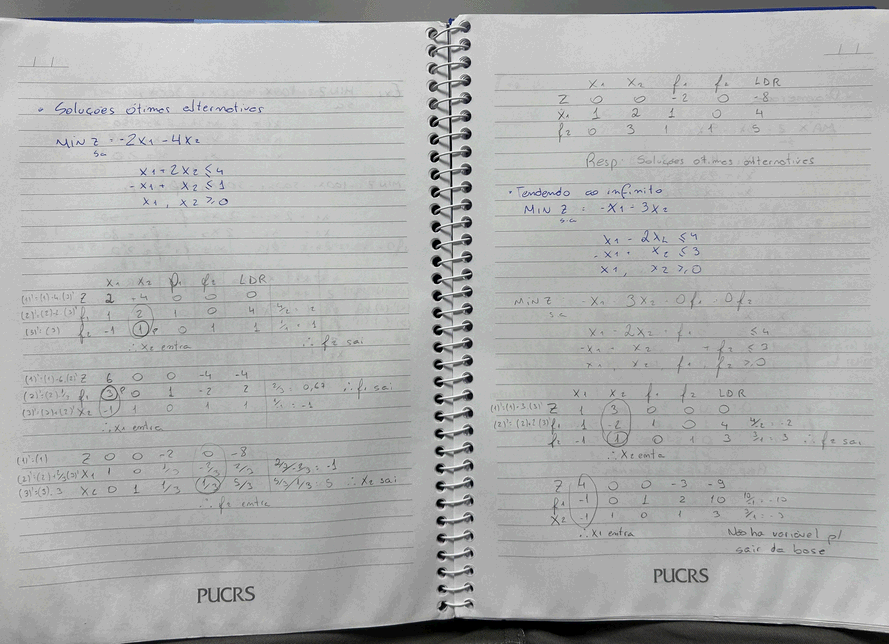 • Soluções ótimas alternativas
MIN Z = -2x1 - 4x2
s.a
x1 + 2x2 ≤ 4
-x1 + x2 ≤ 1
x1, x2 ≥ 0
x1 x2 f1 f2 LDR
Z 2 -4 0 0 0
f1 1 2 1 0 4 4/2 = 2
(3)'=(3) f2 -1 1 0 1 1 1/1 = 1
∴ x2 entra ∴ f2 sai
Z 6 0 0 -4 -4
f1 3 0 1 -2 2 2/3 = 0,67 ∴ f1 sai
x2 -1 1 0 1 1 1/-1 = -1
∴ x1 entra
(1)'=(1) Z 0 0 -2 0 -8
x1 1 0 1/3 -2/3 2/3 = -1
x2 0 1 1/3 1/3 5/3 = 5 ∴ x2 sai
∴ f2 entra
PUCRS
x1 x2 f1 f2 LDR
Z 0 0 -2 0 -8
x1 1 2 1 0 4
f2 0 3 1 1 5
Resp Soluções ótimas alternativas
• Tendendo ao infinito
MIN Z = -x1 - 3x2
s.a
x1 - 2x2 ≤ 4
-x1 + x2 ≤ 3
x1, x2 ≥ 0
MIN Z -x1 3x2 0f1 0f2
s.a
x1 - 2x2 f1 ≤ 4
-x1 + x2 + f2 ≤ 3
x1, x2, f1, f2 ≥ 0
x1 x2 f1 f2 LDR
Z 1 3 0 0 0
f1 1 -2 1 0 4 4/-2 = -2
f2 -1 1 0 1 3 3/1 = 3 ∴ f2 sai
∴ x2 entra
Z 4 0 0 -3 -9
f1 -1 0 1 2 10 10/-1 = -10
x2 -1 1 0 1 3 3/-1 = -3
∴ x1 entra Não há variável p/
sair da base
PUCRS